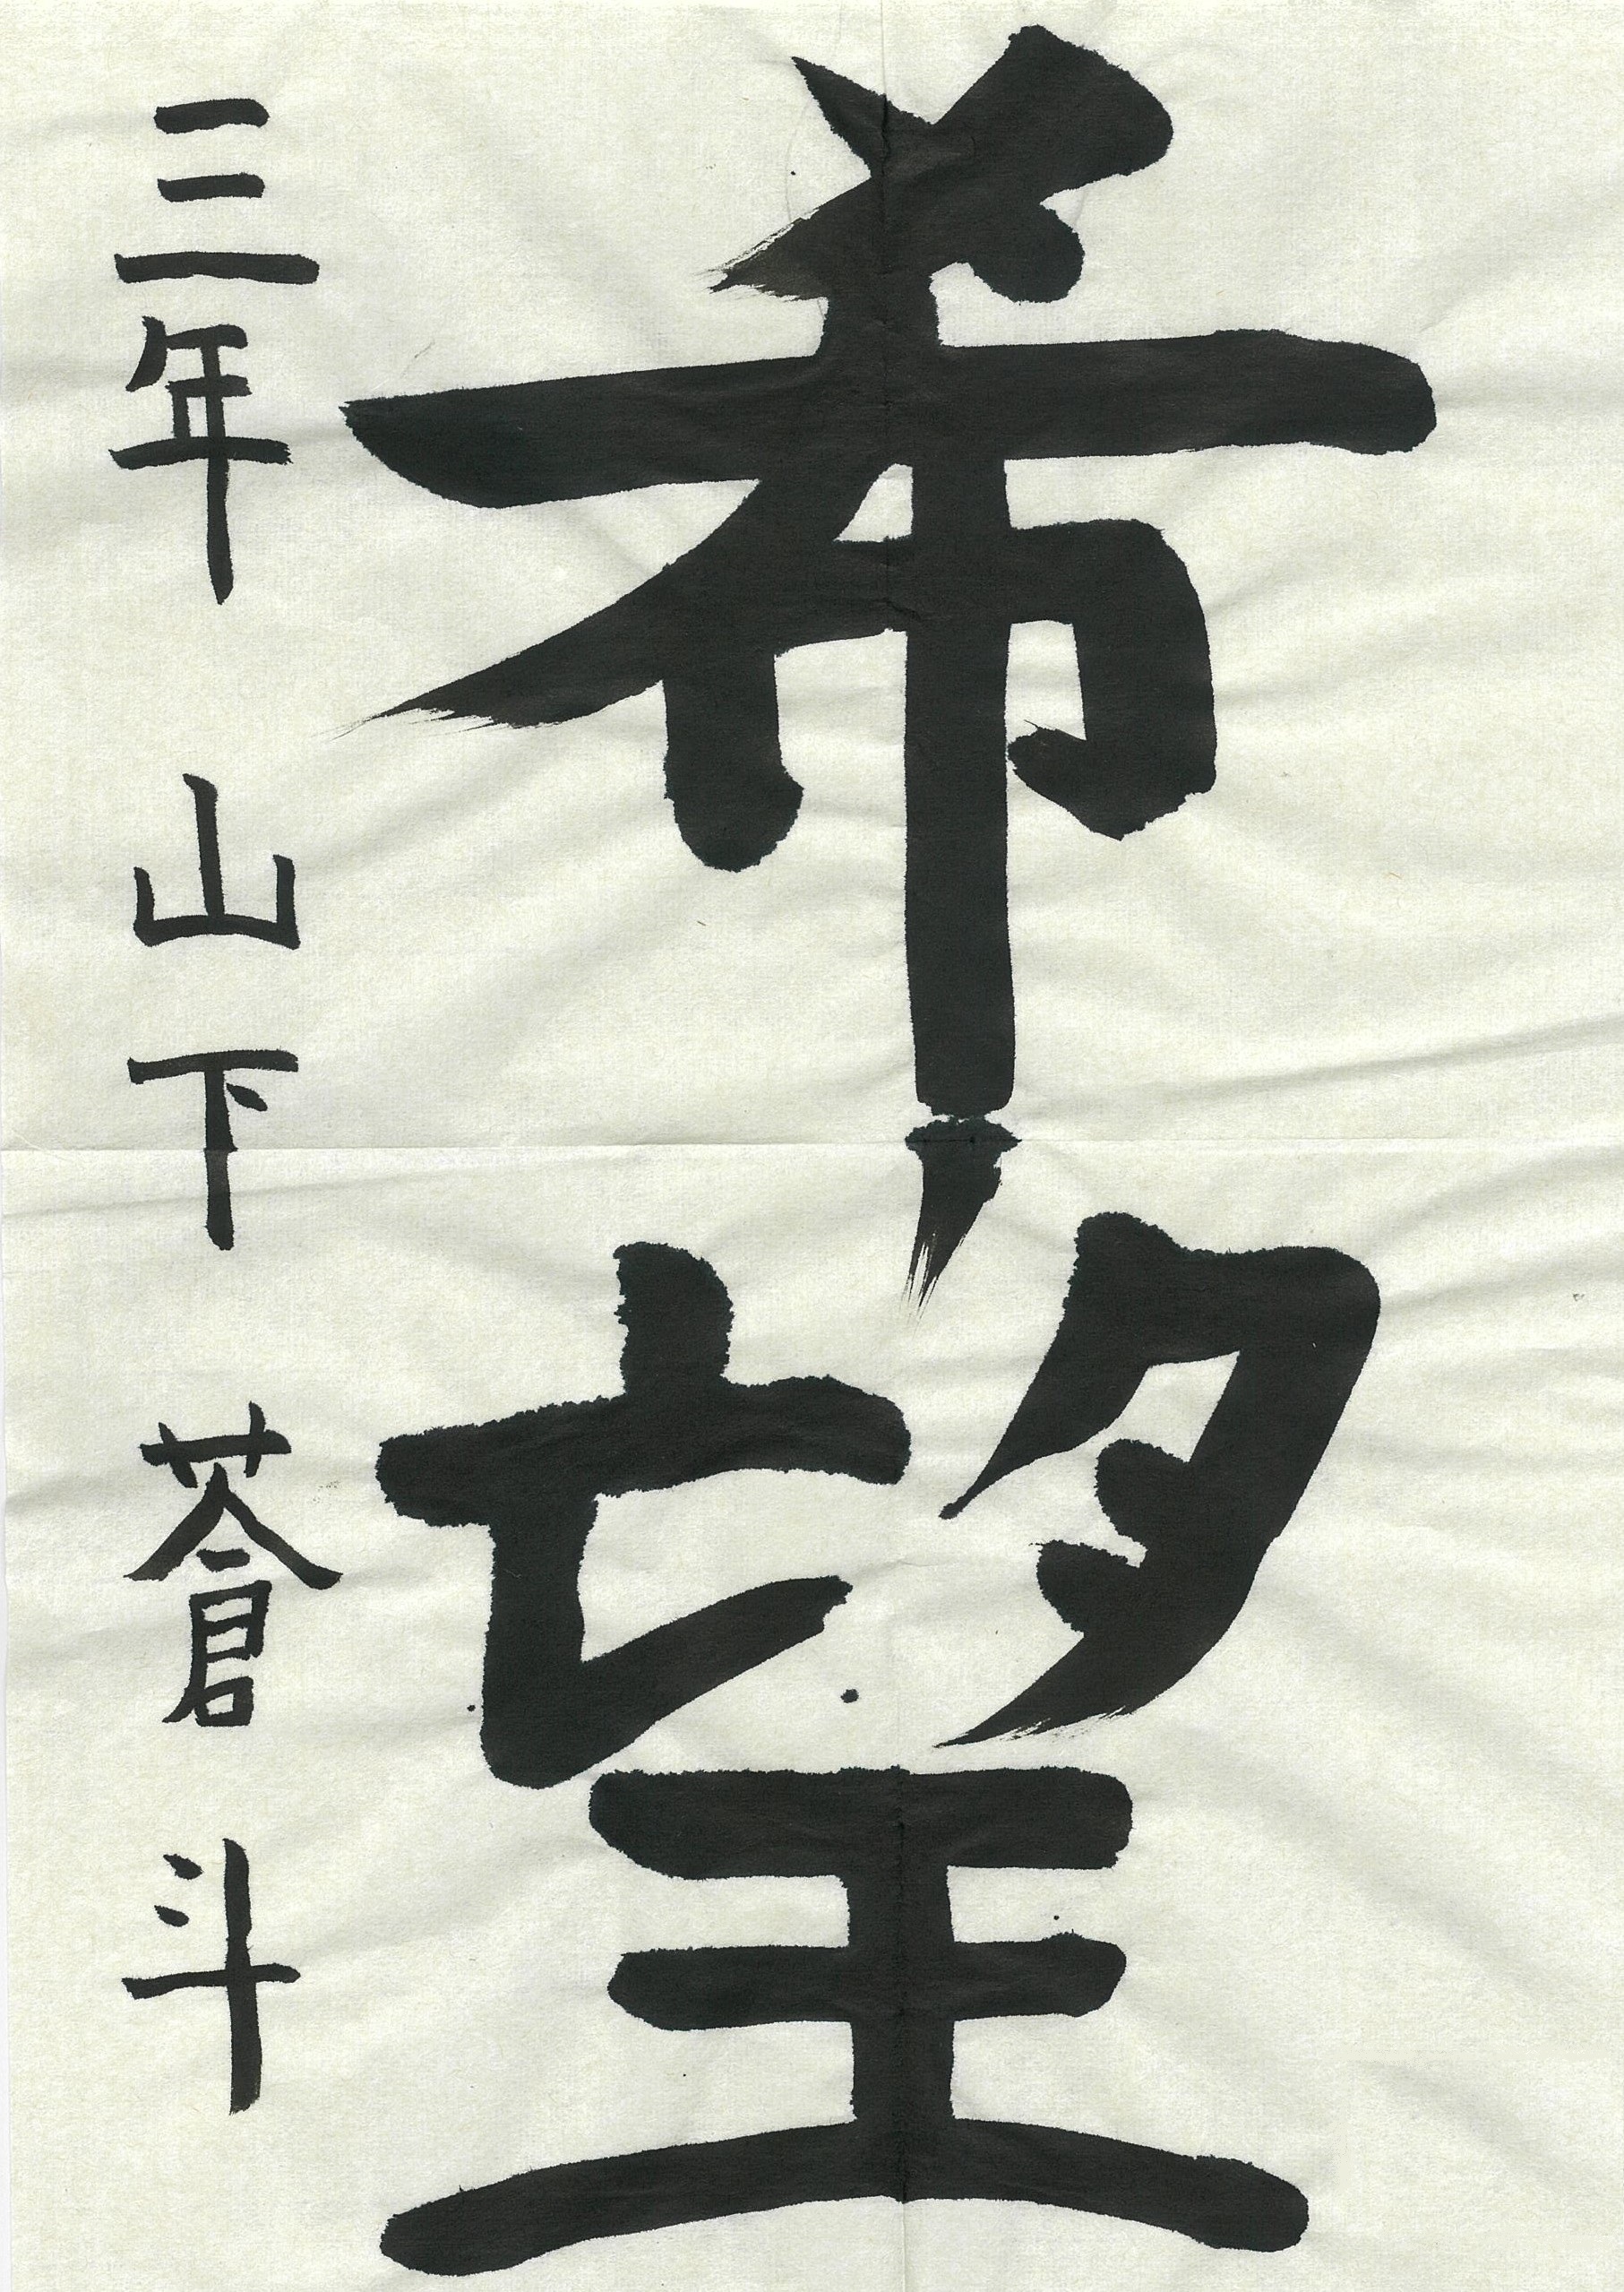 希望
三年 山下 蒼斗